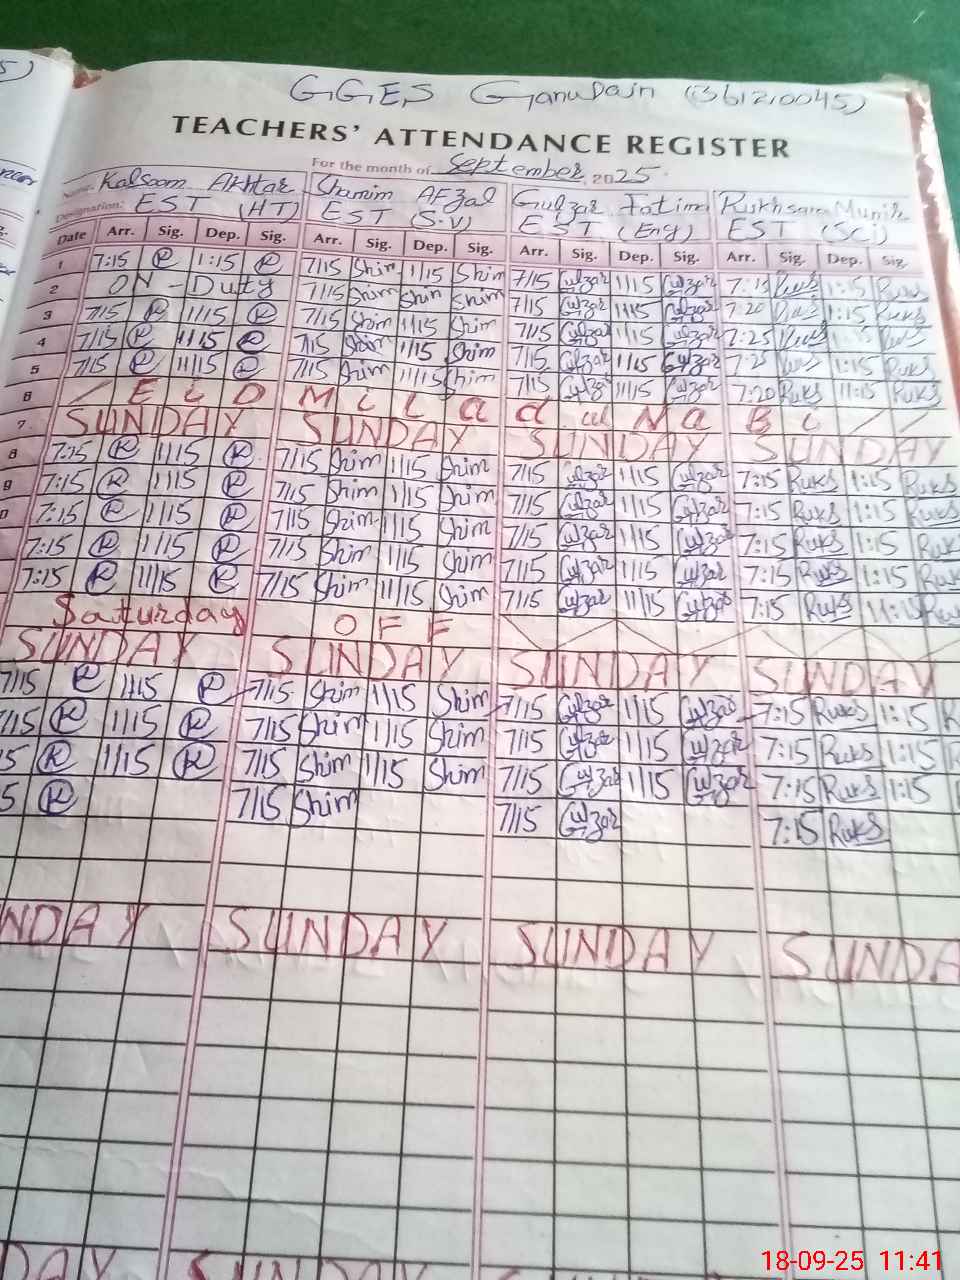 GGES Ganudain (36121,0045)
TEACHERS' ATTENDANCE REGISTER
For the month of September, 2025
Name: Kalsoom Akhtar Shamim Afzal Gulzar Fatima Rukhsana Munir
Designation: EST (HT) EST (S.V) EST (Eng) EST (Sci)
Date Arr. Sig. Dep. Sig. Arr. Sig. Dep. Sig. Arr. Sig. Dep. Sig. Arr. Sig. Dep. Sig.
1 7:15 R 1:15 R 7/15 Shim 1/15 Shim 7/15 Gulzar 1/15 Gulzar 7:15 Ruks 1:15 Ruks
2 ON - Duty 7/15 Shim Shim Shim 7/15 Gulzar 1/15 Gulzar 7:20 Ruks 1:15 Ruks
3 7/15 R 1/15 R 7/15 Shim 1/15 Shim 7/15 Gulzar 1/15 Gulzar 7:25 Ruks 1:15 Ruks
4 7/15 R 1/15 R 7/15 Shim 1/15 Shim 7/15 Gulzar 1/15 Gulzar 7:25 Ruks 1:15 Ruks
5 7/15 R 11/15 R 7/15 Shim 11/15 Shim 7/15 Gulzar 11/15 Gulzar 7:20 Ruks 11:15 Ruks
6 E i D M i L a d ul N a B i
7. SUNDAY SUNDAY SUNDAY SUNDAY
8 7:15 R 1/15 R 7/15 Shim 1/15 Shim 7/15 Gulzar 1/15 Gulzar 7:15 Ruks 1:15 Ruks
9 7:15 R 1/15 R 7/15 Shim 1/15 Shim 7/15 Gulzar 1/15 Gulzar 7:15 Ruks 1:15 Ruks
7:15 R 1/15 R 7/15 Shim 1/15 Shim 7/15 Gulzar 1/15 Gulzar 7:15 Ruks 1:15 Ruks
7:15 R 1/15 R 7/15 Shim 1/15 Shim 7/15 Gulzar 1/15 Gulzar 7:15 Ruks 1:15 Ruks
7:15 R 11/15 R 7/15 Shim 11/15 Shim 7/15 Gulzar 11/15 Gulzar 7:15 Ruks 11:15
Saturday OFF
SUNDAY SUNDAY SUNDAY SUNDAY
7/15 R 1/15 R 7/15 Shim 1/15 Shim 7/15 Gulzar 1/15 Gulzar 7:15 Ruks 1:15
7/15 R 1/15 R 7/15 Shim 1/15 Shim 7/15 Gulzar 1/15 Gulzar 7:15 Ruks 1:15
15 R 1/15 R 7/15 Shim 1/15 Shim 7/15 Gulzar 1/15 Gulzar 7:15 Ruks 1:15
5 R 7/15 Shim 7/15 Gulzar 7:15 Ruks
NDAY SUNDAY SUNDAY SUNDA
DAY SUNDAY
18-09-25 11:41